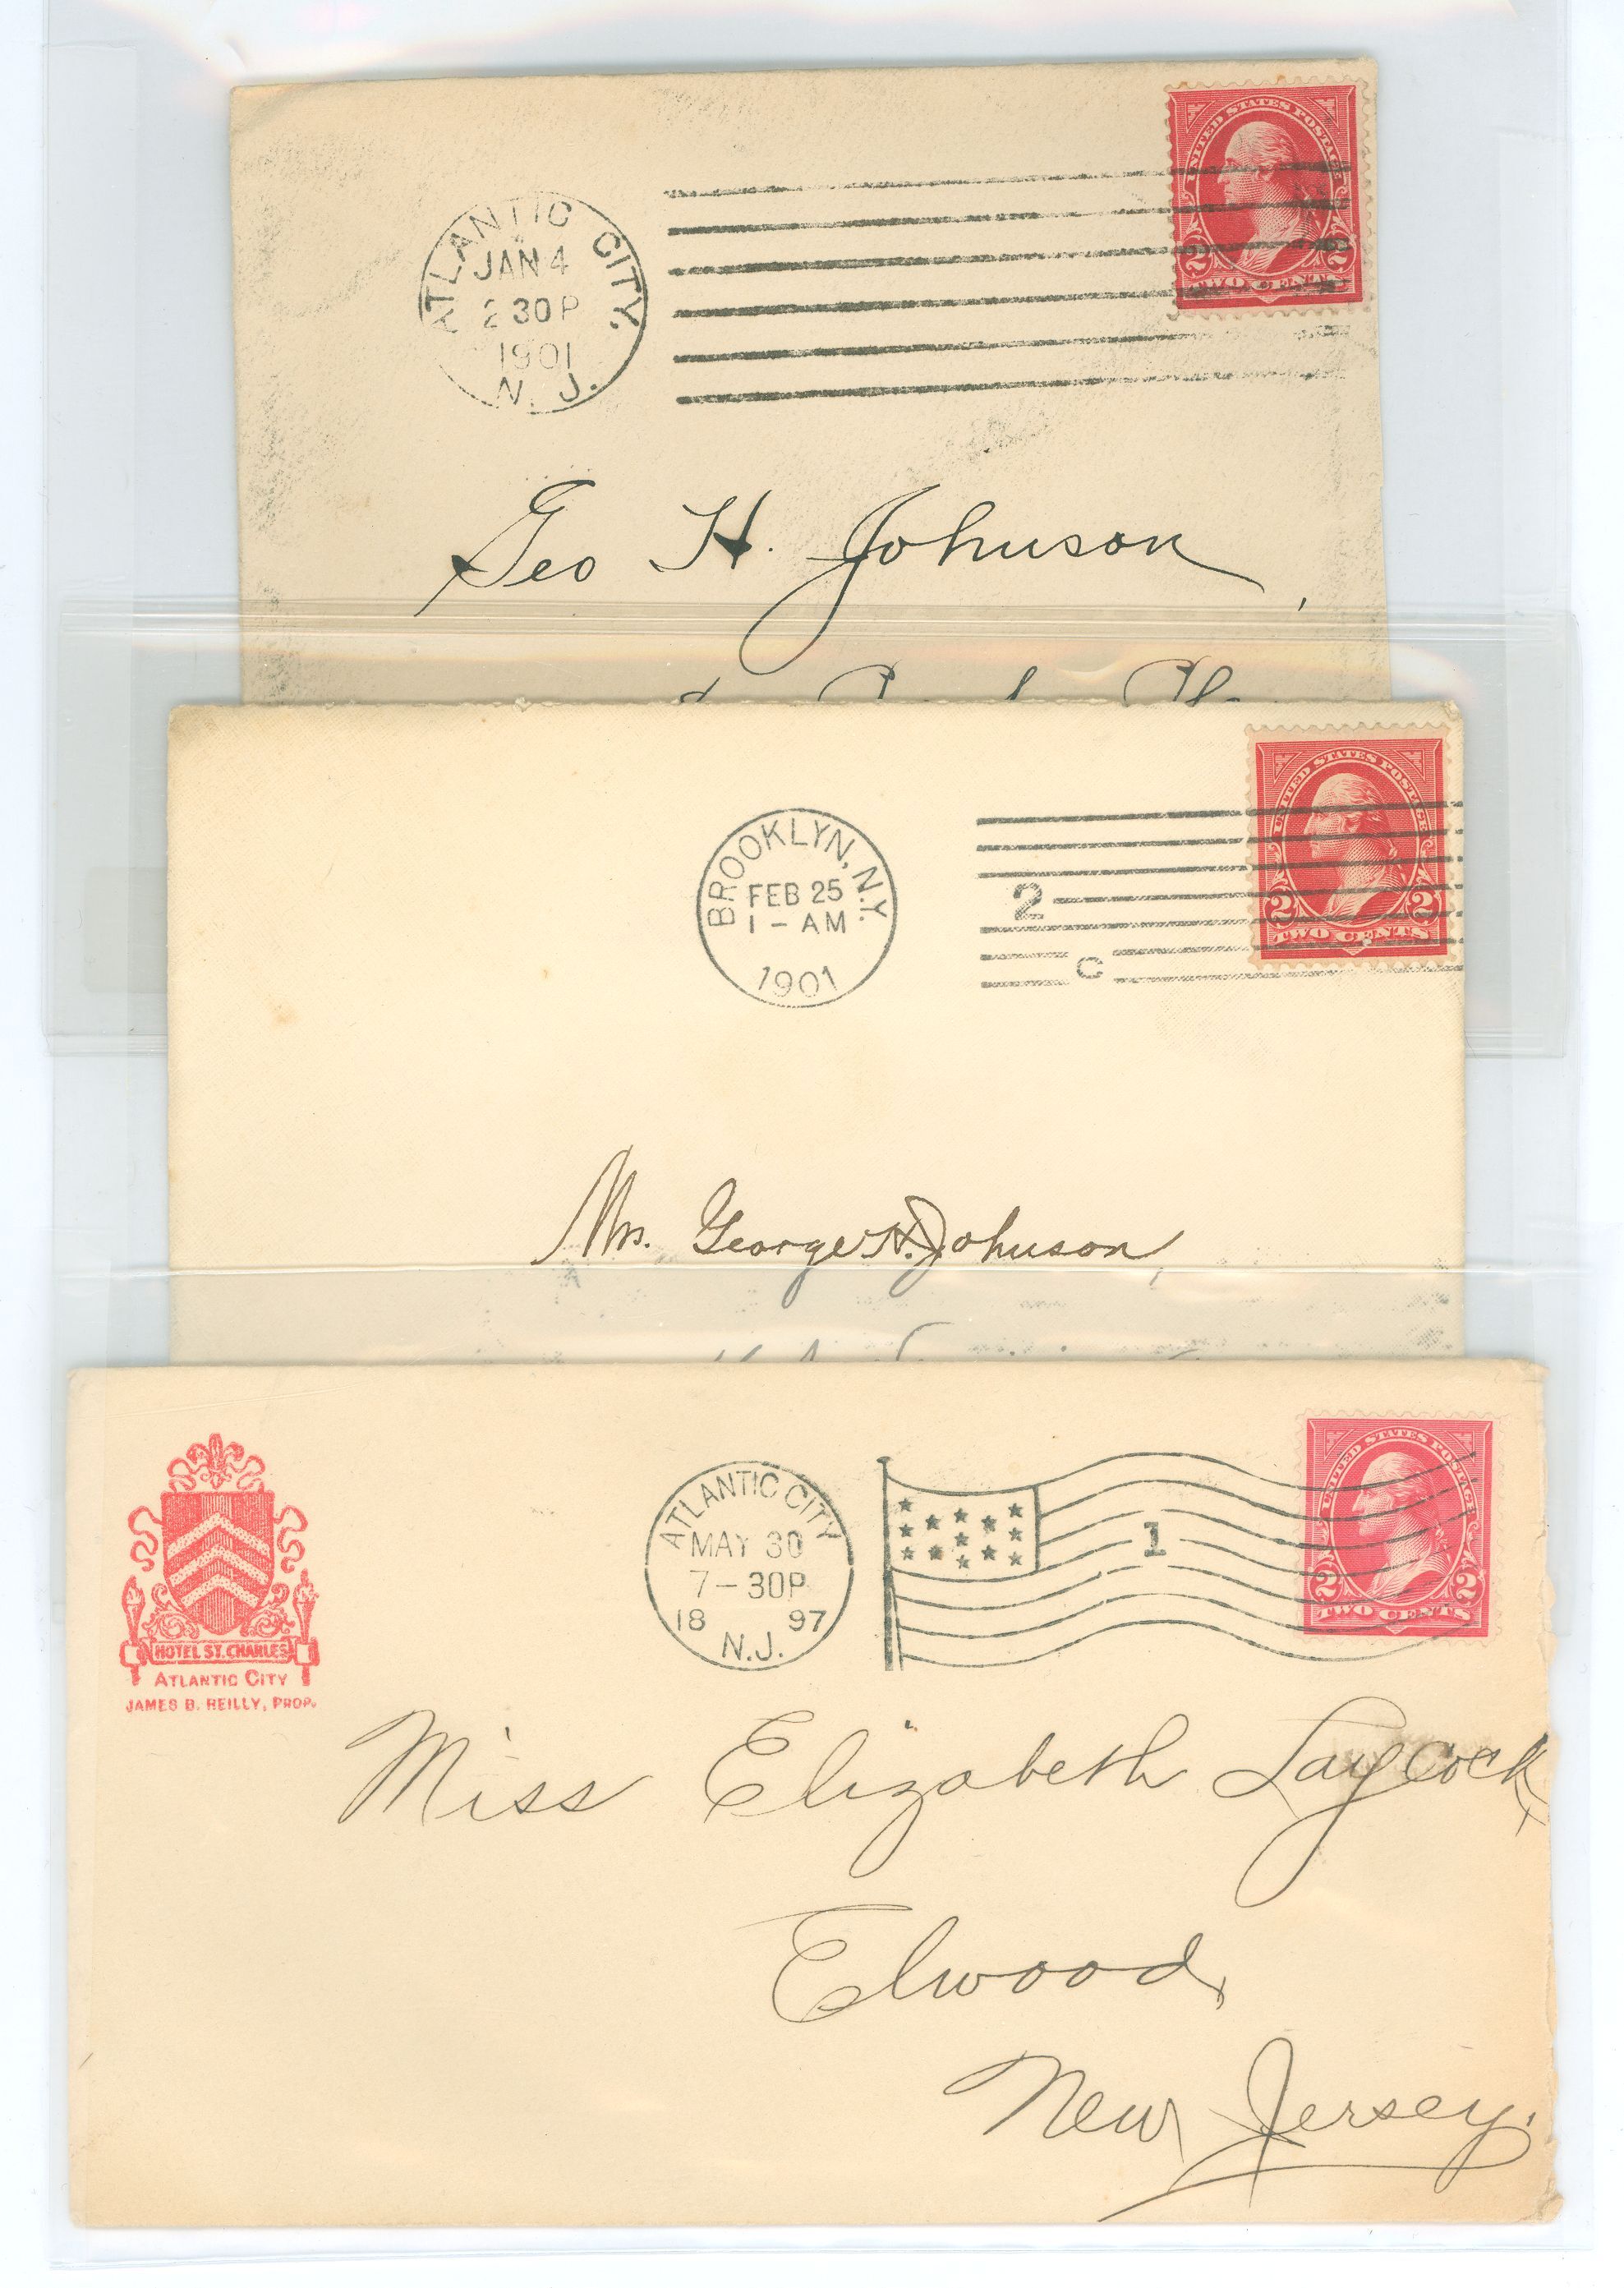 UNITED STATES POSTAGE
2 2
TWO CENTS
ATLANTIC CITY,
JAN 4
2 30 P
1901
N. J.
Geo H. Johnson,
UNITED STATES POSTAGE
2 2
TWO CENTS
BROOKLYN, N.Y.
FEB 25
1 - AM
1901
2
C
Mr. George H. Johnson,
UNITED STATES POSTAGE
2 2
TWO CENTS
ATLANTIC CITY
MAY 30
7 - 30P
18 97
N.J.
1
HOTEL ST. CHARLES
ATLANTIC CITY
JAMES B. REILLY, PROP.
Miss Elizabeth Laycock,
Elwood,
New Jersey.